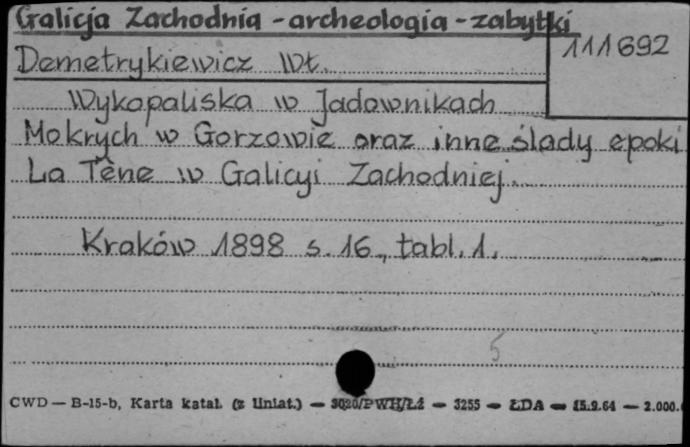 Galicja Zachodnia - archeologia - zabytki
111692
Demetrykiewicz Wł.
Wykopaliska w Jadownikach
Mokrych w Gorzowie oraz inne ślady epoki
La Tène w Galicyi Zachodniej.
Kraków 1898 s. 16, tabl. 1.
5
CWD — B-15-b, Karta katal. (z liniat.) — 3020/PWH/Łż — 3255 — ŁDA — 15.9.64 — 2.000.